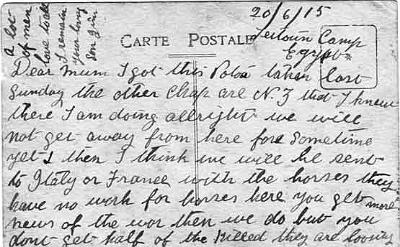 20/6/15
CARTE POSTALE
Camp
Egypt
Dear Mum I got this taken last
Sunday the other Chap are N.Z that I knew
there I am doing allright we will
not get away from here fore Sometime
yet & then I think we will be sent
to Italy or France with the horses they
have no work for horses here you get more
news of the wor then we do but you
dont get half of the Killed they are
a lot
of men
love to all
I remain
your loving
Son